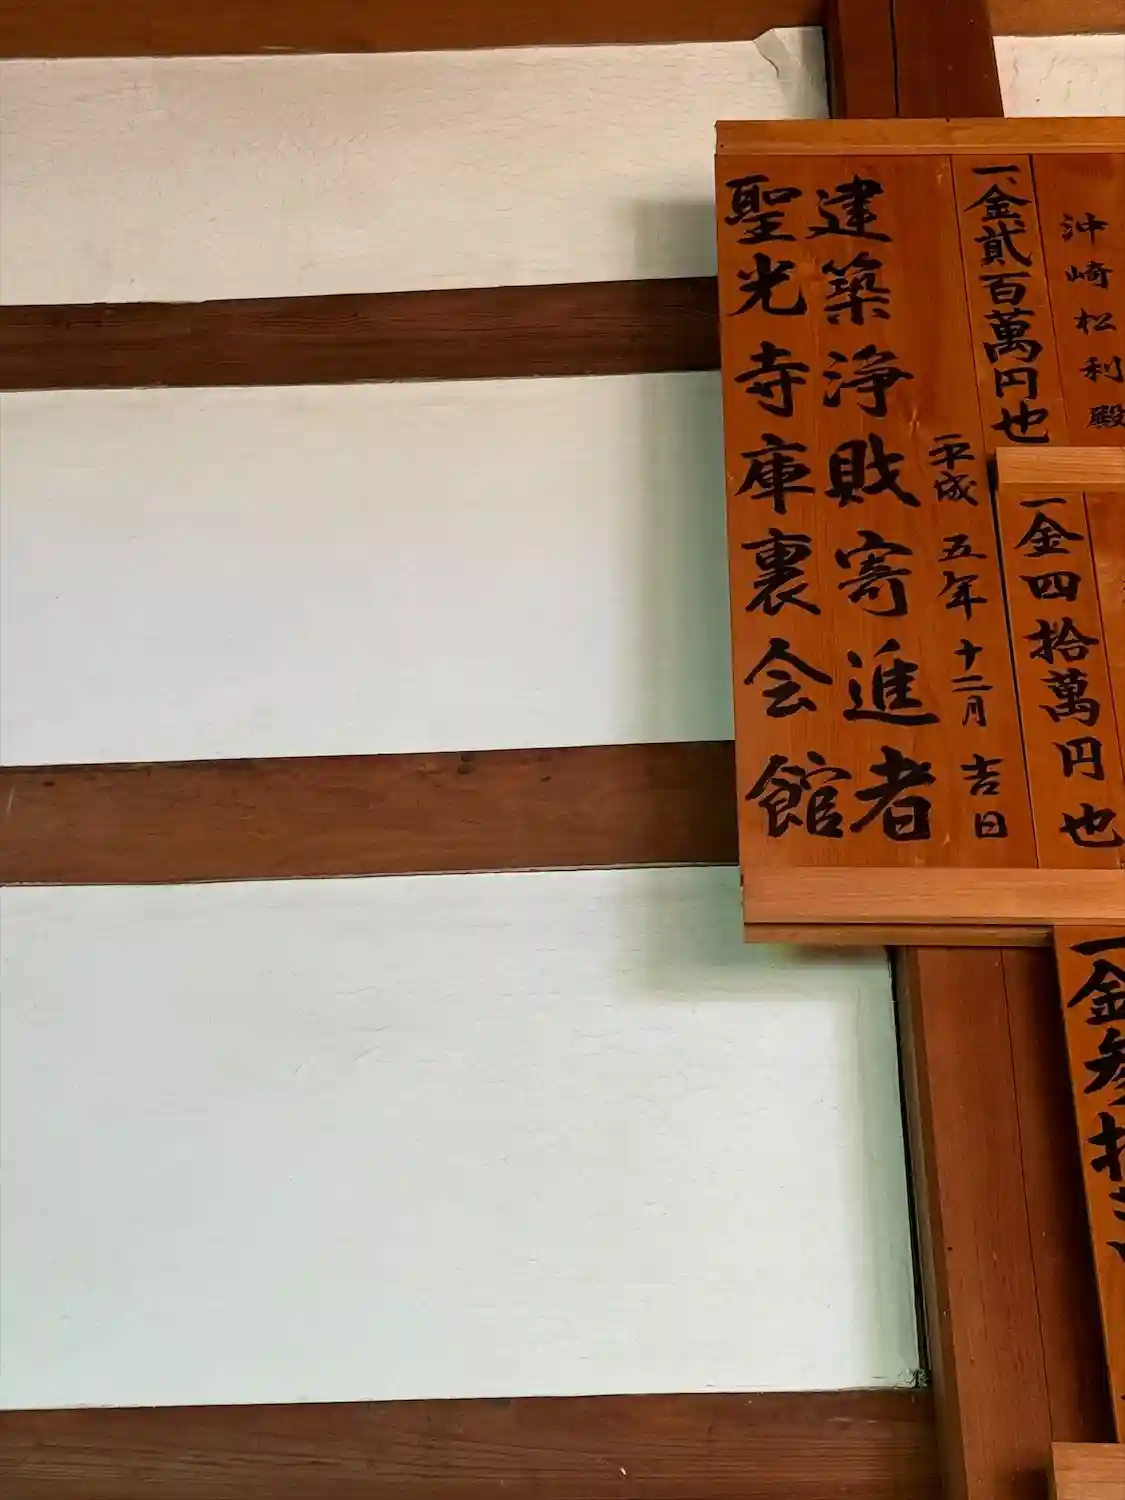 聖光寺庫裏会館
建築浄財寄進者
平成五年十二月吉日
一、金貳百萬円也
沖崎松利殿
一金四拾萬円也
一金参拾